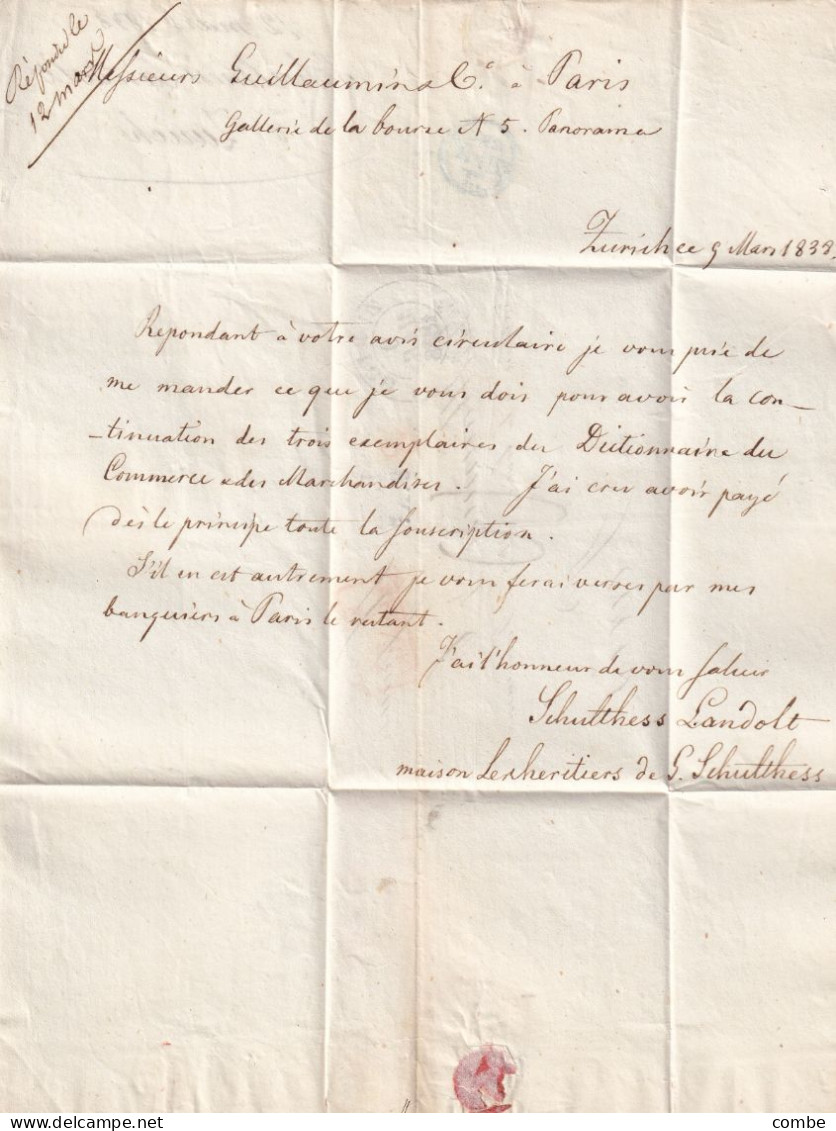 Répondu le
12 mars
Messieurs Guillaumin & Cᵉ à Paris
Gallerie de la bourse N 5. Panorama
Zurich ce 9 Mars 1838.
Repondant à votre avis circulaire je vous prie de
me mander ce que je vous dois pour avoir la con-
-tinuation des trois exemplaires du Dictionnaire du
Commerce & des Marchandises. J'ai cru avoir payé
dès le principe toute la souscription.
S'il en est autrement je vous ferai verser par mes
banquiers à Paris le restant.
J'ai l'honneur de vous saluer
Schulthess Landolt
maison Les heritiers de G. Schulthess
combe